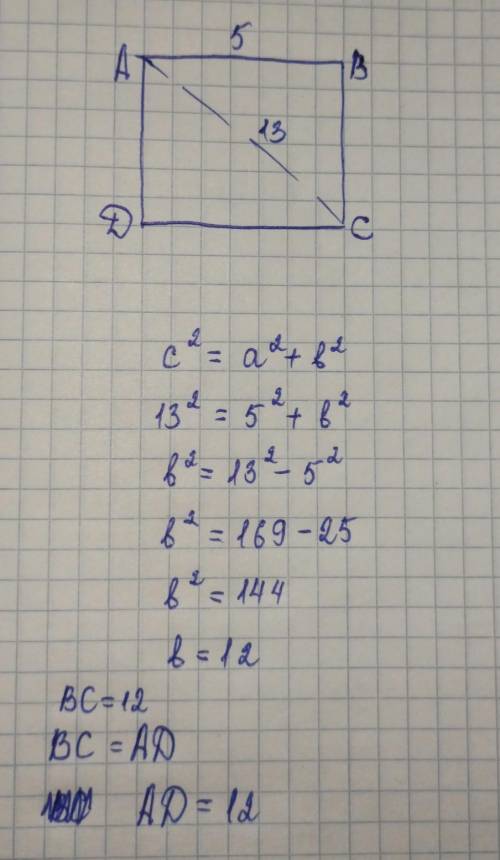 5
A B
13
D C
c² = a² + b²
13² = 5² + b²
b² = 13² - 5²
b² = 169 - 25
b² = 144
b = 12
BC = 12
BC = AD
AD = 12